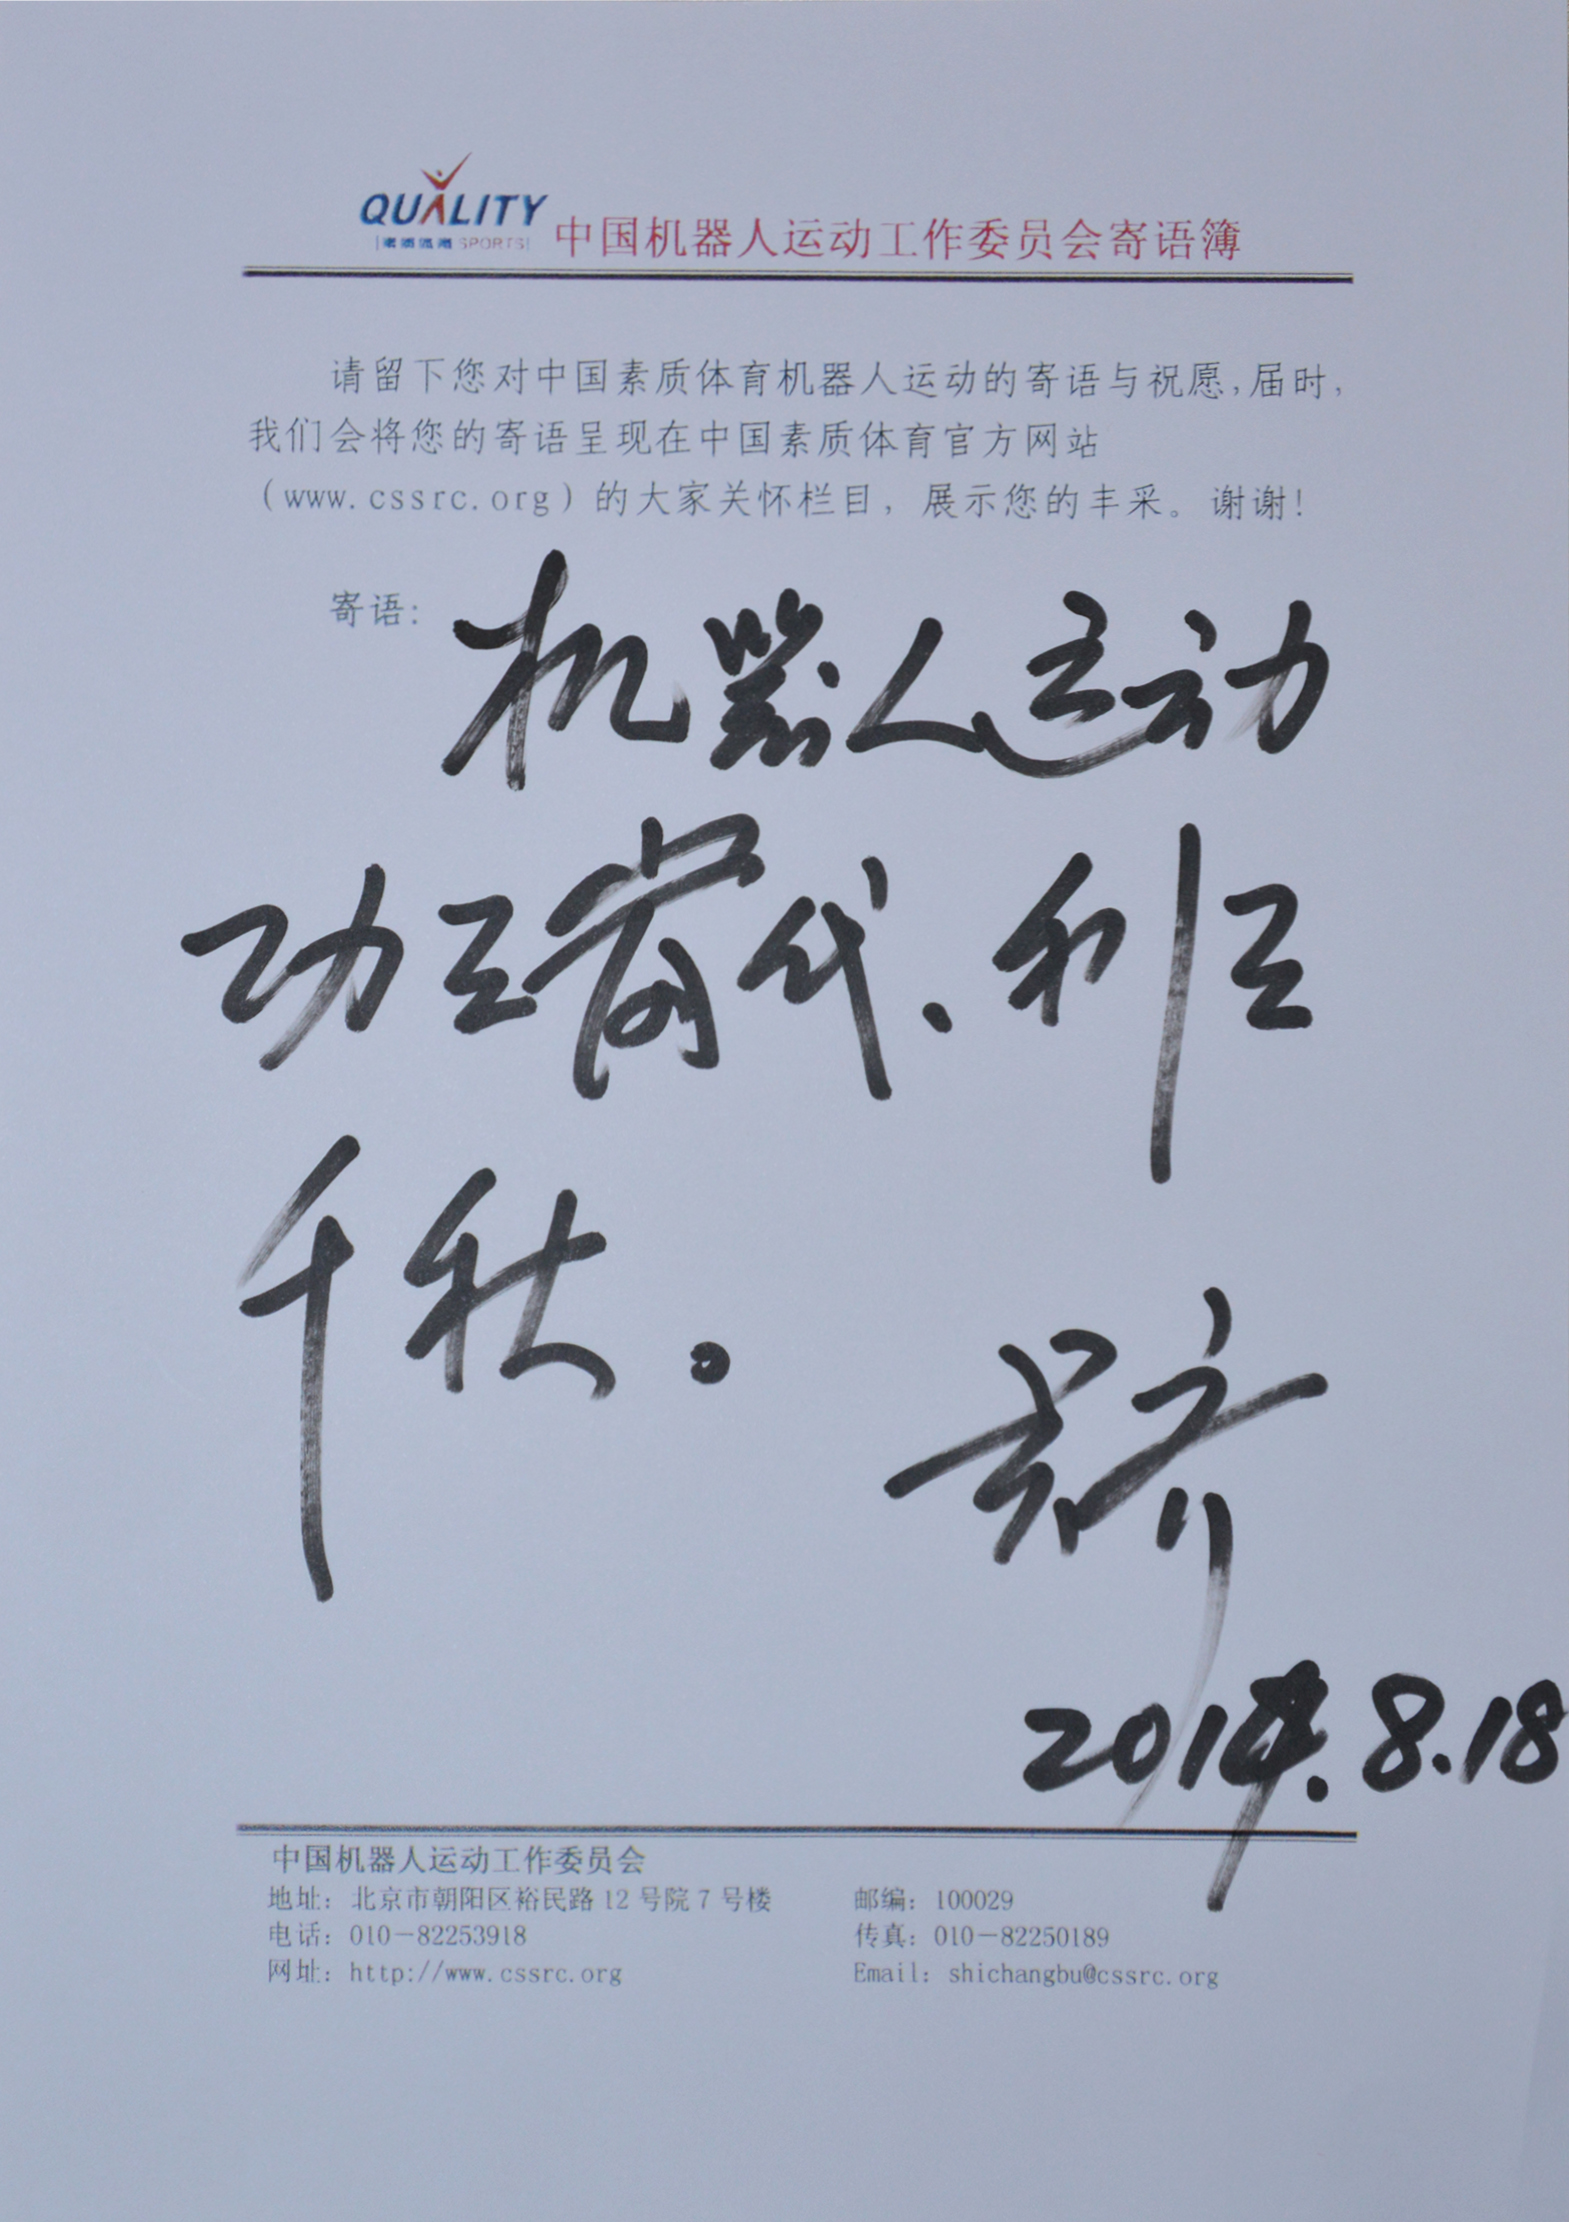 QUALITY
素质体育 SPORTS
中国机器人运动工作委员会寄语簿
请留下您对中国素质体育机器人运动的寄语与祝愿,届时,
我们会将您的寄语呈现在中国素质体育官方网站
(www.cssrc.org)的大家关怀栏目,展示您的丰采。谢谢!
寄语:
机器人运动
功在当代、利在
千秋。
2014.8.18
中国机器人运动工作委员会
地址:北京市朝阳区裕民路12号院7号楼 邮编:100029
电话:010-82253918 传真:010-82250189
网址:http://www.cssrc.org Email:shichangbu@cssrc.org